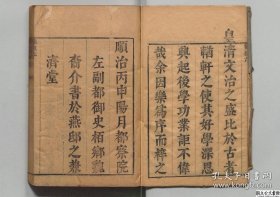 皇
清文治之盛比於古者
輶軒之使其好學深思
興起後學功業詎不偉
哉余因樂爲序而幷之
順治丙申陽月都察院
左副都御史栢鄉魏
裔介書於燕邸之兼
濟堂